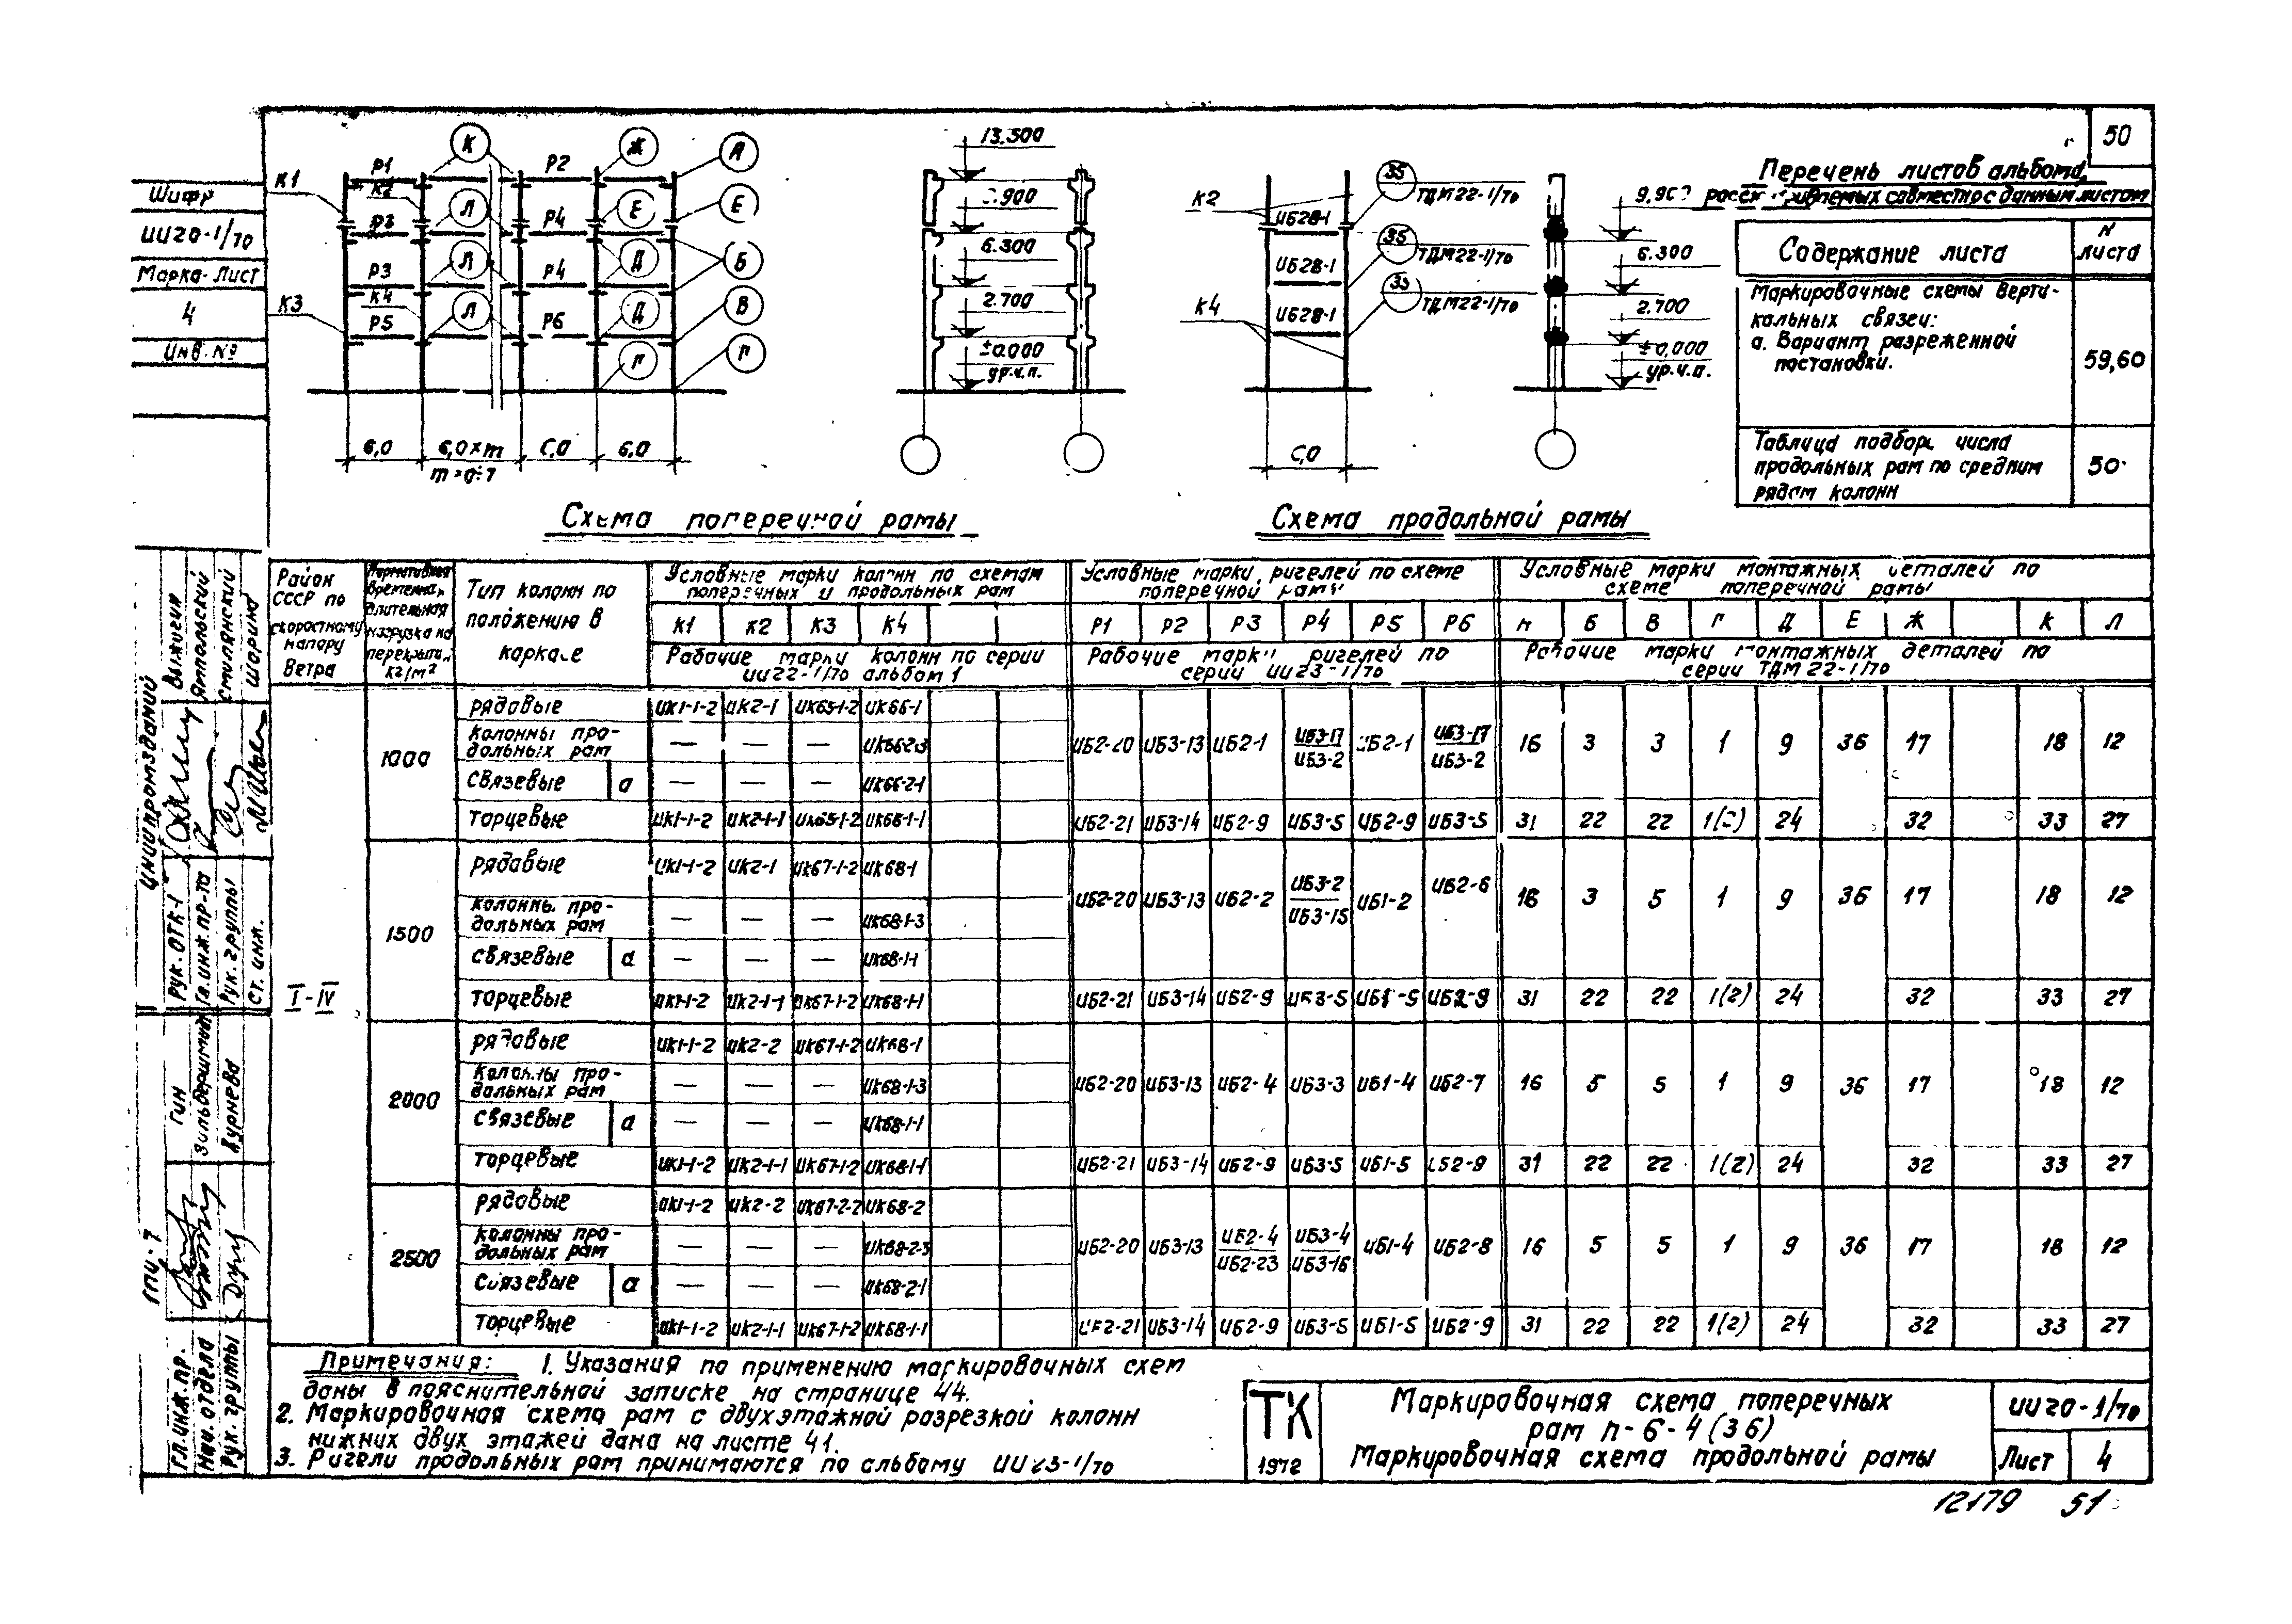 50
Шифр
ИИ20-1/70
Марка-Лист
4
Инв. №
К1
К3
Р1
К2
Р3
Р3
К4
Р5
К
Л
Л
Л
Р2
Р4
Р4
Р6
Ж
Е
Д
Д
Г
А
Е
Б
В
Г
6,0
6,0×m
6,0
m=0÷7
13.500
6.300
2.700
±0.000
ур.ч.п.
К2
К4
ИБ28-1
ИБ28-1
ИБ28-1
35
ТДМ22-1/70
35
ТДМ22-1/70
ТДМ22-1/70
6.300
2.700
±0,000
ур.ч.п.
Схема поперечной рамы
Схема продольной рамы
Перечень листов альбома,
совместно с данным листом
Содержание листа
N листа
Маркировочные схемы верти-
кальных связей:
а. Вариант разреженной
постановки.
59,60
Таблица подбора числа
продольных рам по средним
рядам колонн
50
Район СССР по скоростному напору ветра
Нормативная временная длительная нагрузка на перекрытия, кг/м²
Тип колонн по положению в каркасе
Условные марки колонн по схемам поперечных и продольных рам
Условные марки ригелей по схеме поперечной рамы
Условные марки монтажных деталей по схеме поперечной рамы
К1 К2 К3 К4 Р1 Р2 Р3 Р4 Р5 Р6 Б В Г Д Е Ж К Л
Рабочие марки колонн по серии ИИ22-1/70 альбом 1
Рабочие марки ригелей по серии ИИ23-1/70
Рабочие марки монтажных деталей по серии ТДМ 22-1/70
I-IV
1000
рядовые ИК1-1-2 ИК2-1 ИК65-1-2 ИК66-1
колонны про-
дольных рам — — — ИК66-2-3
ИБ2-20 ИБ3-13 ИБ2-1 ИБ3-17 ИБ3-2 ИБ2-1 ИБ3-17 ИБ3-2 16 3 3 1 9 36 17 18 12
связевые а — — — ИК66-2-1
торцевые ИК1-1-2 ИК2-1-1 ИК65-1-2 ИК66-1-1 ИБ2-21 ИБ3-14 ИБ2-9 ИБ3-5 ИБ2-9 ИБ3-5 31 22 22 24 32 33 27
1500
рядовые ИК1-1-2 ИК2-1 ИК67-1-2 ИК68-1
колонны про-
дольных рам — — — ИК68-1-3
ИБ2-20 ИБ3-13 ИБ2-2 ИБ3-2 ИБ3-15 ИБ1-2 ИБ2-6 16 3 5 1 9 36 17 18 12
связевые а — — — ИК68-1-1
торцевые ИК1-1-2 ИК2-1-1 ИК67-1-2 ИК68-1-1 ИБ2-21 ИБ3-14 ИБ2-9 ИБ3-5 ИБ1-5 ИБ2-9 31 22 22 1(2) 24 32 33 27
2000
рядовые ИК1-1-2 ИК2-2 ИК67-1-2 ИК68-1
колонны про-
дольных рам — — — ИК68-1-3
ИБ2-20 ИБ3-13 ИБ2-4 ИБ3-3 ИБ1-4 ИБ2-7 16 5 5 1 9 36 17 18 12
связевые а — — — ИК68-1-1
торцевые ИК1-1-2 ИК2-1-1 ИК67-1-2 ИК68-1-1 ИБ2-21 ИБ3-14 ИБ2-9 ИБ3-5 ИБ1-5 ИБ2-9 31 22 22 1(2) 24 32 33 27
2500
рядовые ИК1-1-2 ИК2-2 ИК67-2-2 ИК68-2
колонны про-
дольных рам — — — ИК68-2-3
ИБ2-20 ИБ3-13 ИБ2-4 ИБ2-23 ИБ3-4 ИБ3-16 ИБ1-4 ИБ2-8 16 5 5 1 9 36 17 18 12
связевые а — — — ИК68-2-1
торцевые ИК1-1-2 ИК2-1-1 ИК67-1-2 ИК68-1-1 ИБ2-21 ИБ3-14 ИБ2-9 ИБ3-5 ИБ1-5 ИБ2-9 31 22 22 1(2) 24 32 33 27
Примечания: 1. Указания по применению маркировочных схем
даны в пояснительной записке на странице 44.
2. Маркировочная схема рам с двухэтажной разрезкой колонн
нижних двух этажей дана на листе 41.
3. Ригели продольных рам принимаются по альбому ИИ23-1/70
ТК
1972
Маркировочная схема поперечных
рам п-6-4(36)
Маркировочная схема продольной рамы
ИИ20-1/70
Лист 4
12179 51
ЦНИИпромзданий
Рук. ОТК-1
Гл. инж. пр-та
Рук. группы
Ст. инж.
Выжигин
Ямпольский
Смилянский
Шорина
ГПИ-7
Гл. инж. пр.
Нач. отдела
Рук. группы
Гин
Зильберман